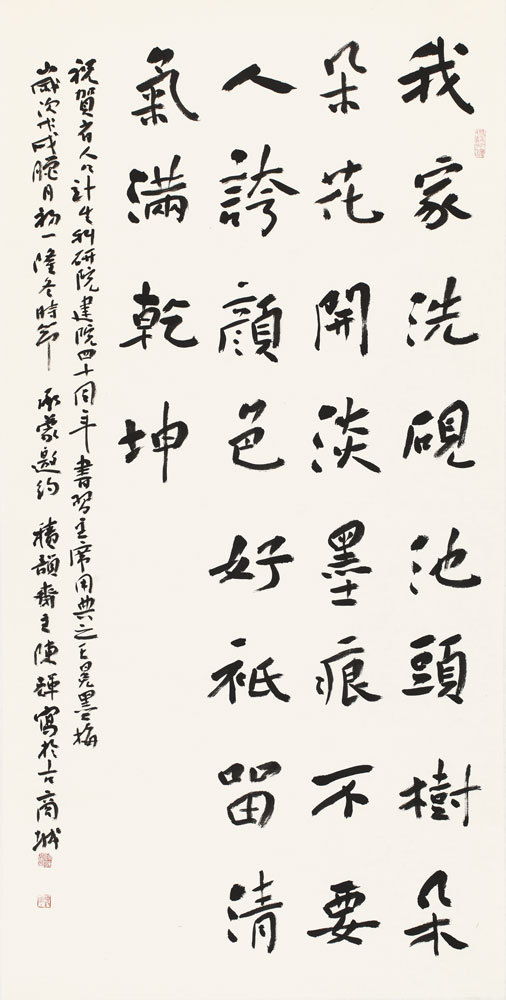 我家洗硯池頭樹朵
朵花開淡墨痕不要
人誇顏色好祇留清
氣滿乾坤
祝賀省人口計生科研院建院四十周年 書習主席用典之王冕墨梅
歲次戊戌臘月初一隆冬時節 承蒙邀約 穗韻齋主陳輝寫於古商城